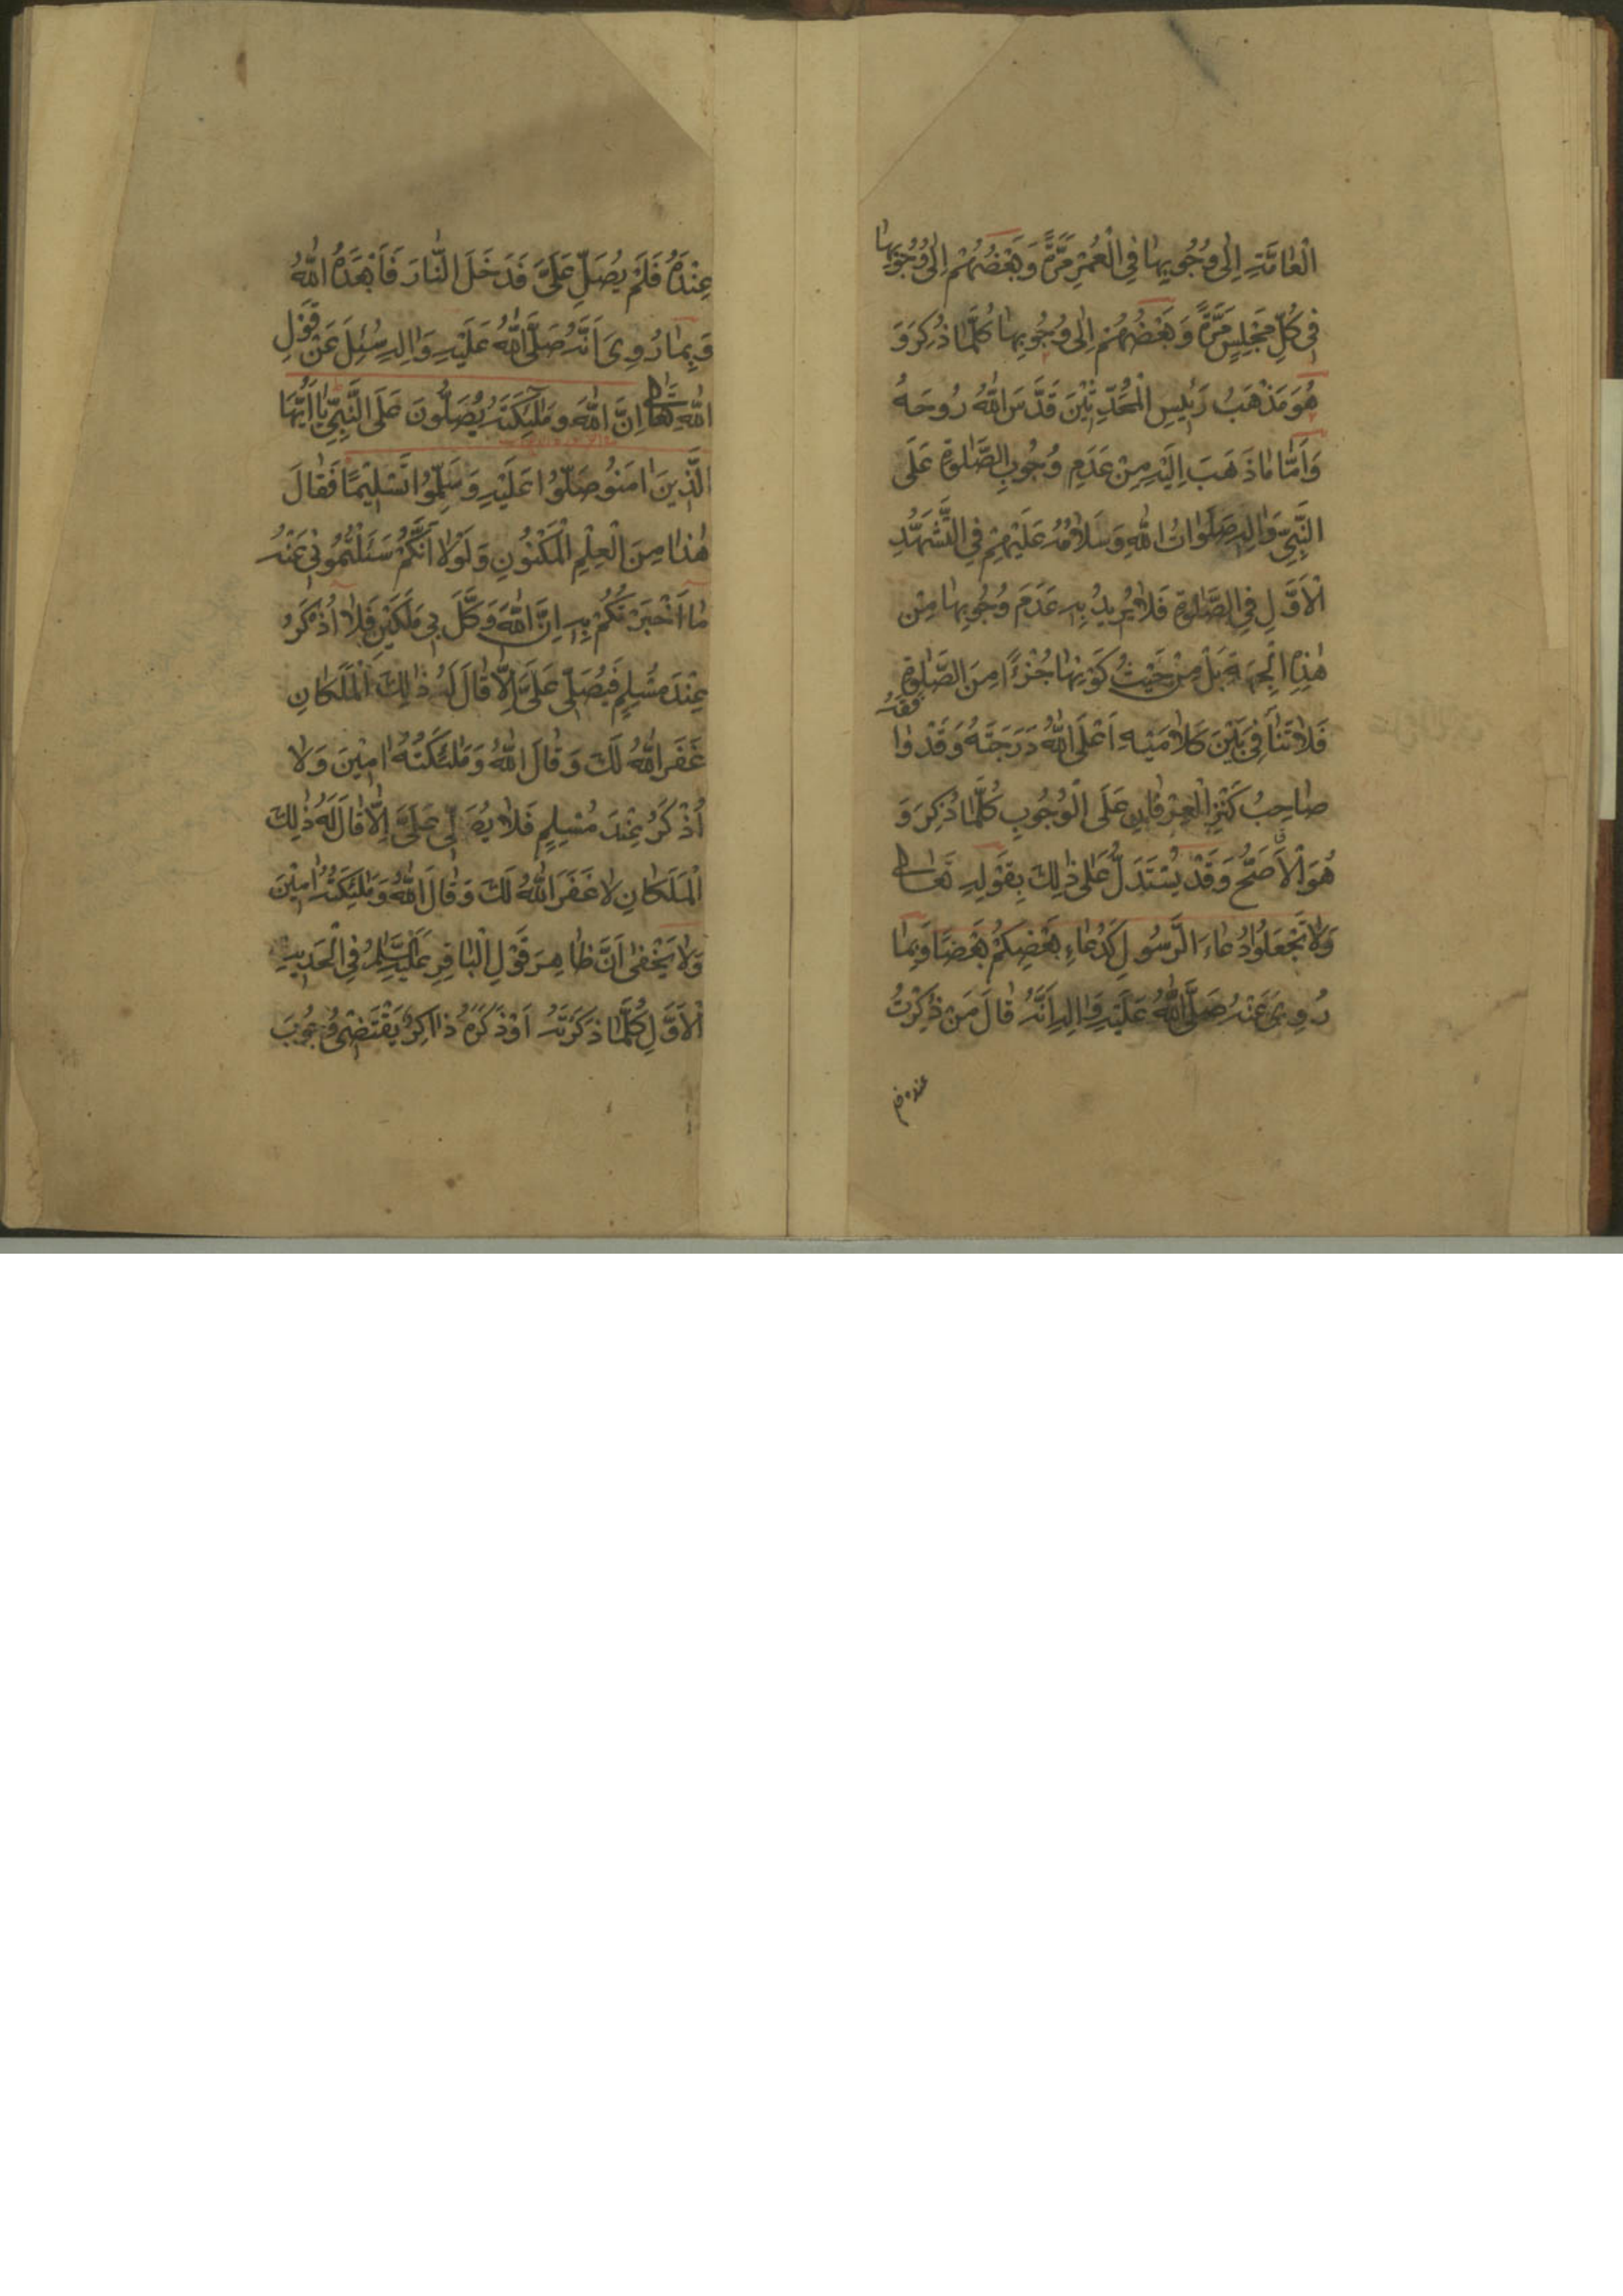 الْعٰامَّةِ اِلٰى وُجُوبِهٰا فِي الْعُمْرِ مَرَّةً وَبَعْضُهُمْ اِلٰى وُجُوبِهٰا
فِي كُلِّ مَجْلِسٍ مَرَّةً وَبَعْضُهُمْ اِلٰى وُجُوبِهٰا كُلَّمٰا ذُكِرَ وَ
هُوَ مَذْهَبُ رَئِيسِ الْمُحَدِّثِيْنَ قَدَّسَ اللّٰهُ رُوحَهُ
وَاَمَّا مٰا ذَهَبَ اِلَيْهِ مِنْ عَدَمِ وُجُوبِ الصَّلٰوةِ عَلَى
النَّبِيِّ وَاٰلِهِ صَلَوٰاتُ اللّٰهِ وَسَلٰامُهُ عَلَيْهِمْ فِي التَّشَهُّدِ
الْاَوَّلِ فِي الصَّلٰوةِ فَلٰا يُرِيدُ بِهِ عَدَمَ وُجُوبِهٰا مِنْ
هٰذِهِ الْجِهَةِ بَلْ مِنْ حَيْثُ كَوْنِهٰا جُزْءًا مِنَ الصَّلٰوةِ
فَلٰا تَنٰافِيَ بَيْنَ كَلٰامَيْهِ اَعْلَى اللّٰهُ دَرَجَتَهُ وَقَدْ وٰافَقَهُ
صٰاحِبُ كَنْزِ الْعِرْفٰانِ عَلَى الْوُجُوبِ كُلَّمٰا ذُكِرَ وَ
هُوَ الْاَصَحُّ وَقَدْ يُسْتَدَلُّ عَلٰى ذٰلِكَ بِقَوْلِهِ تَعٰالٰى
وَلٰا تَجْعَلُوا دُعٰاءَ الرَّسُولِ كَدُعٰاءِ بَعْضِكُمْ بَعْضًا وَبِمٰا
رُوِيَ عَنْهُ صَلَّى اللّٰهُ عَلَيْهِ وَاٰلِهِ اَنَّهُ قٰالَ مَنْ ذُكِرْتُ
عنده فم
عِنْدَهُ فَلَمْ يُصَلِّ عَلَيَّ فَدَخَلَ النّٰارَ فَاَبْعَدَهُ اللّٰهُ
وَبِمٰا رُوِيَ اَنَّهُ صَلَّى اللّٰهُ عَلَيْهِ وَاٰلِهِ سُئِلَ عَنْ قَوْلِ
اللّٰهِ تَعٰالٰى اِنَّ اللّٰهَ وَمَلٰئِكَتَهُ يُصَلُّونَ عَلَى النَّبِيِّ يٰا اَيُّهَا
الَّذِينَ اٰمَنُو صَلُّوا عَلَيْهِ وَسَلِّمُوا تَسْلِيمًا فَقٰالَ
هٰذٰا مِنَ الْعِلْمِ الْمَكْنُونِ وَلَوْلٰا اَنَّكُمْ سَئَلْتُمُونِي عَنْهُ
مٰا اَخْبَرْتُكُمْ بِهِ اِنَّ اللّٰهَ وَكَّلَ بِي مَلَكَيْنِ فَلٰا اُذْكَرُ
عِنْدَ مُسْلِمٍ فَيُصَلِّي عَلَيَّ اِلّٰا قٰالَ لَهُ ذٰلِكَ الْمَلَكٰانِ
غَفَرَ اللّٰهُ لَكَ وَقٰالَ اللّٰهُ وَمَلٰئِكَتُهُ اٰمِيْنَ وَلٰا
اُذْكَرُ عِنْدَ مُسْلِمٍ فَلٰا يُصَلِّي عَلَيَّ اِلّٰا قٰالَ لَهُ ذٰلِكَ
الْمَلَكٰانِ لٰا غَفَرَ اللّٰهُ لَكَ وَقٰالَ اللّٰهُ وَمَلٰئِكَتُهُ اٰمِيْنَ
وَلٰا يَخْفٰى اَنَّ ظٰاهِرَ قَوْلِ الْبٰاقِرِ عَلَيْهِ السَّلٰمُ فِي الْحَدِيثِ
الْاَوَّلِ كُلَّمٰا ذَكَرْتَهُ اَوْ ذَكَرَهُ ذٰاكِرٌ يَقْتَضِي وُجُوبَ